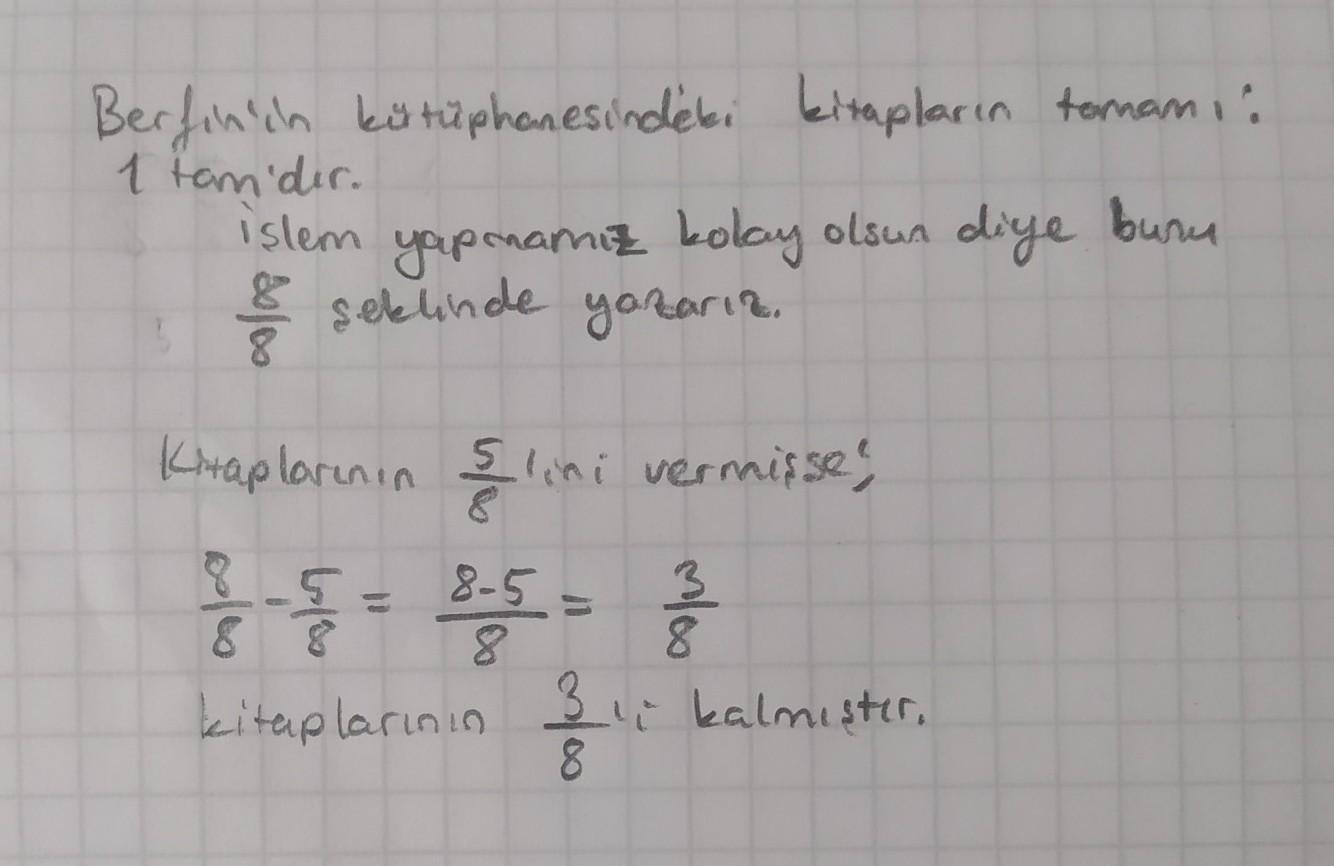 Berfin'in kütüphanesindeki kitapların tamamı:
1 tam'dır.
işlem yapmamız kolay olsun diye bunu
8/8 şeklinde yazarız.
Kitaplarının 5/8'ini vermişse;
8/8 - 5/8 = 8-5/8 = 3/8
kitaplarının 3/8'i kalmıştır.